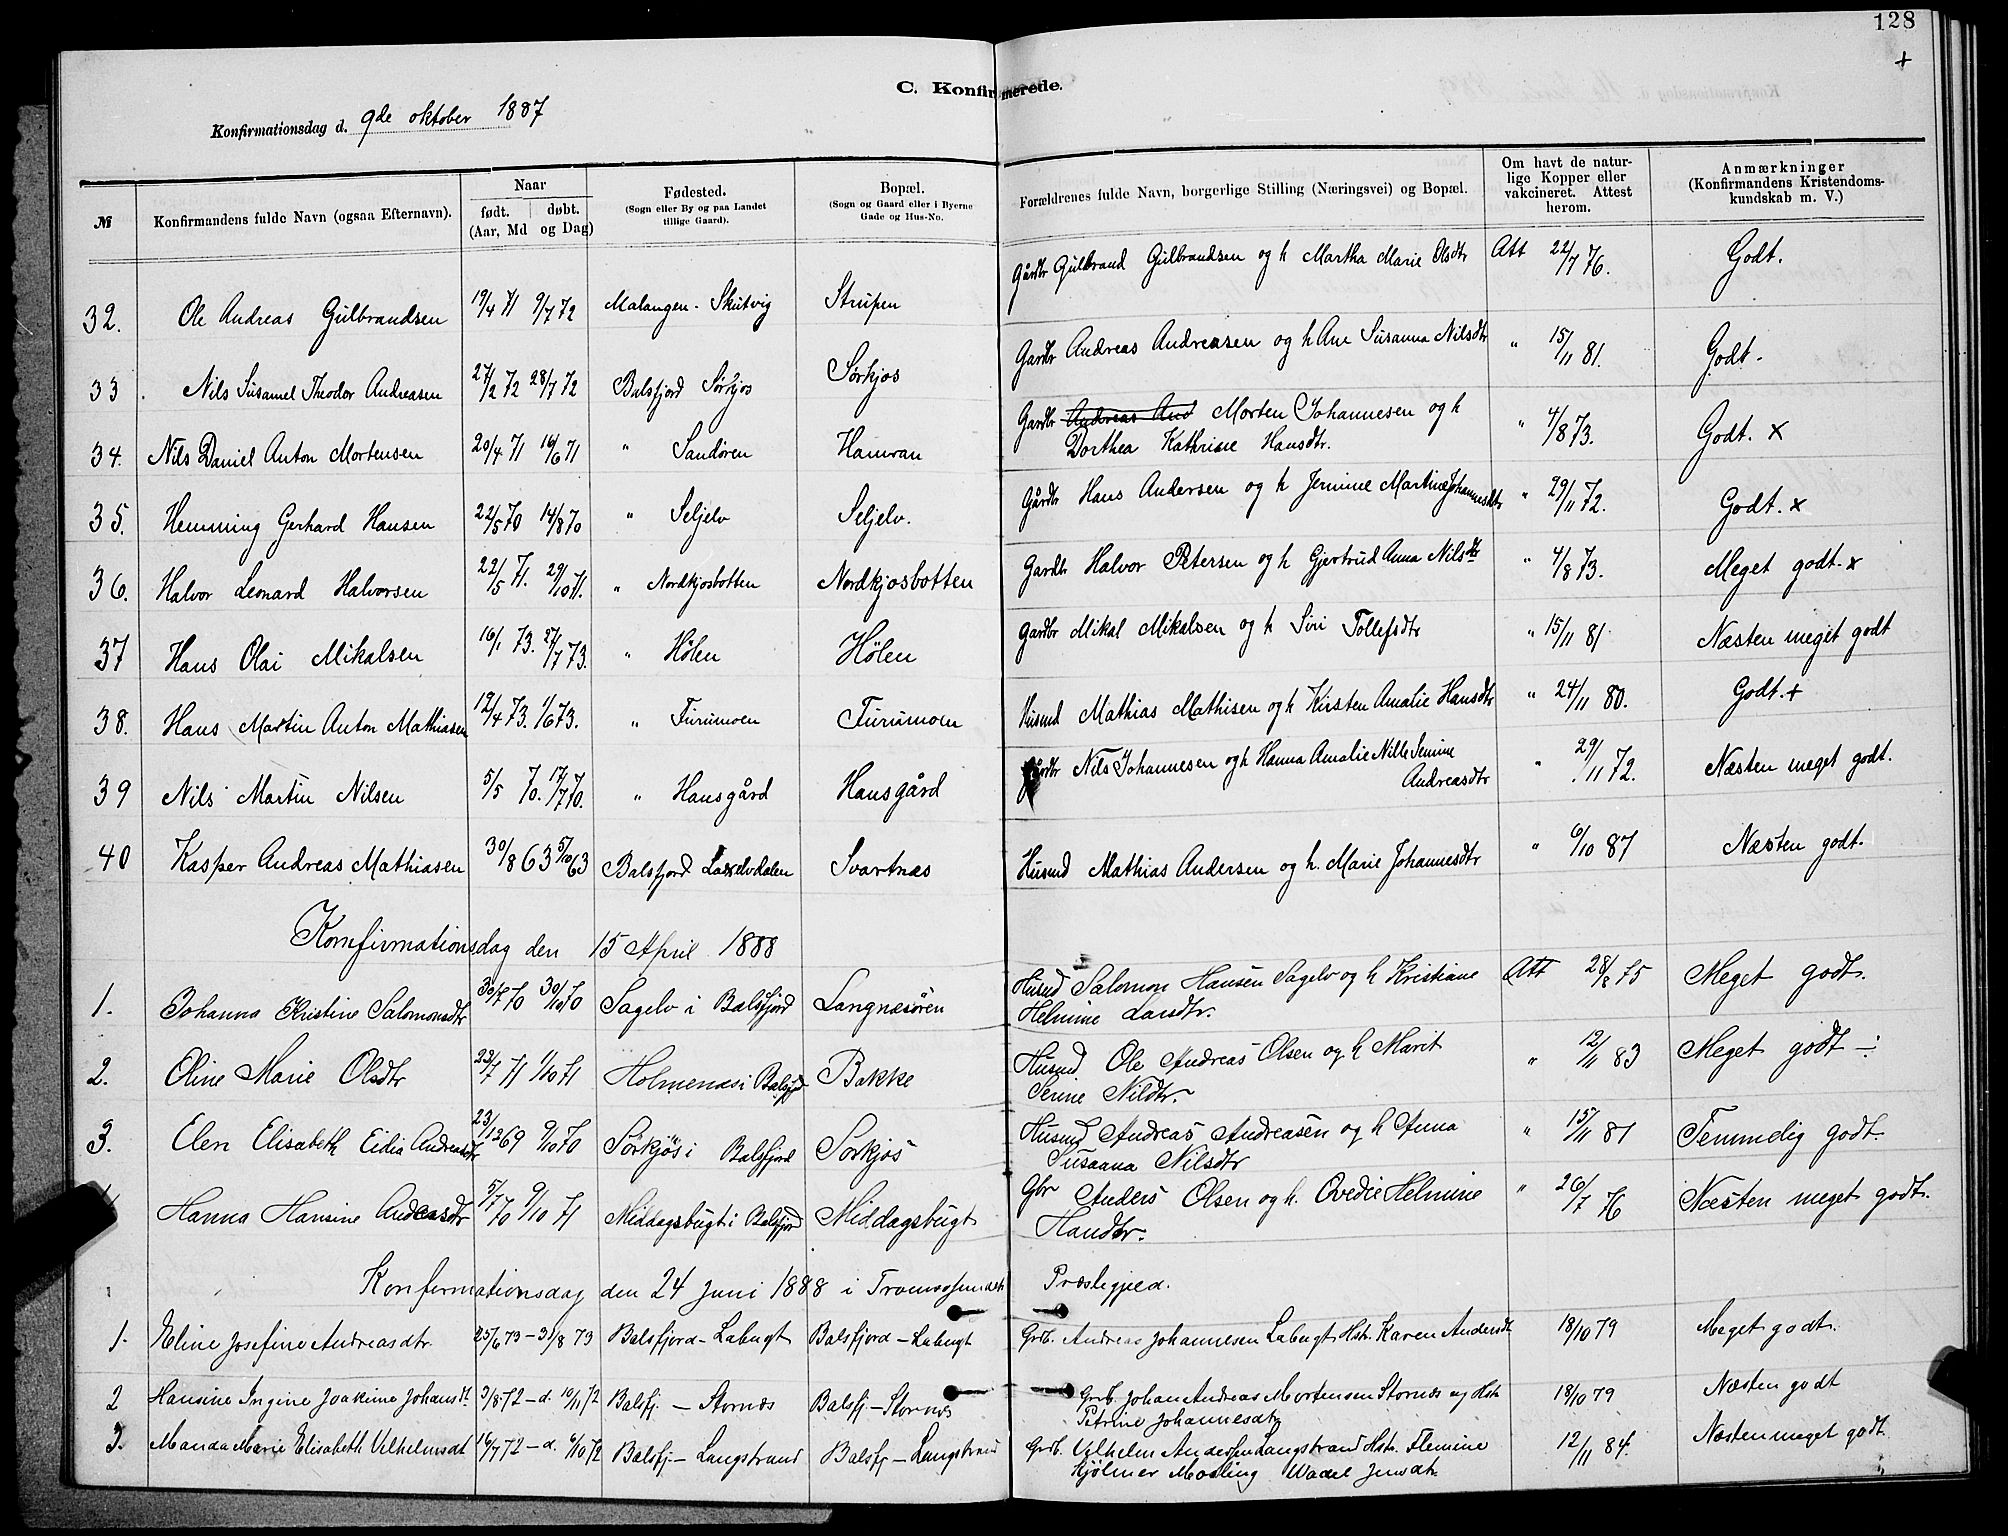 128
+
C. Konfirmerede.
Konfirmationsdag d. 9de oktober 1887
№ Konfirmandens fulde Navn (ogsaa Efternavn). Naar født. døbt. (Aar, Md og Dag) Fødested. (Sogn eller By og paa Landet tillige Gaard). Bopæl. (Sogn og Gaard eller i Byerne Gade og Hus-No. Forældrenes fulde Navn, borgerlige Stilling (Næringsvei) og Bopæl. Om havt de naturlige Kopper eller vakcineret. Attest herom. Anmærkninger (Konfirmandens Kristendomskundskab m. V.)
32. Ole Andreas Gulbrandsen 19/4 71 9/7 72 Malangen - Skutvig Strupen Gårdbr Gulbrand Gulbrandsen og h Martha Marie Olsdtr Att 22/7 76. Godt.
33. Nils Susamel Theodor Andreasen 27/2 72 28/7 72 Balsfjord Sørkjos Sørkjos Gardbr Andreas Andreasen og h Ane Susanna Nilsdtr " 15/11 81. Godt.
34. Nils Daniel Anton Mortensen 20/4 71 16/6 71 " Sandøren Hamran Gardbr Andreas And Morten Johannesen og h " 4/8 73. Godt. x
Dorthea Kathrine Hansdtr.
35. Hemming Gerhard Hansen 22/5 70 14/8 70 " Seljelv Seljelv. Gårdbr Hans Andersen og h Jermine Martine Johannesdtr " 29/11 72. Godt. x
36. Halvor Leonard Halvorsen 22/5 71. 29/10 71. " Nordkjosbotten Nordkjosbotten Gardbr Halvor Petersen og h Gjertrud Anna Nilsdtr " 4/8 73. Meget godt. x
37 Hans Olai Mikalsen 16/1 73. 27/7 73. " Hølen Hølen Gardbr Mikal Mikalsen og h Siri Tollefsdtr " 15/11 81. Næsten meget godt
38. Hans Martin Anton Mathiasen 12/4 73. 1/6 73. " Furumoen Furumoen Husmd Mathias Mathisen og h Kirsten Amalie Hansdtr " 24/11 80. Godt. +
39 Nils Martin Nilsen 5/5 70. 17/7 70. " Hansgård Hansgård Gårdbr Nils Johannesen og h Hanna Amalie Nille Semine " 29/11 72. Næsten meget godt.
Andreasdtr
40 Kasper Andreas Mathiasen 30/8 63 5/10 63 Balsfjord Laxelvdalen Svartnæs Husmd Mathias Andersen og h. Marie Johannesdtr " 6/10 87 Næsten godt.
Konfirmationsdag den 15 April 1888
1. Johanna Kristine Salomonsdtr 30/7 70 30/10 70 Sagelv i Balsfjord Langnæsøren Husmd Salomon Hansen Sagelv og h Kristiane Att 28/8 75 Meget godt.
Helmine Larsdtr.
2. Oline Marie Olsdtr 23/7 71 1/10 71 Holmenæs i Balsfjd Bakke Husmd Ole Andreas Olsen og h Marit " 12/11 83 Meget godt ÷
Serine Nildtr.
3. Elen Elisabeth Eidia Andreasdtr 23/12 69 9/10 70 Sørkjøs i Balsfjord Sørkjøs Husmd Andreas Andreasen og h Anna " 15/11 81 Temmelig godt.
Susanna Nilsdtr
Hanna Hansine Andersdtr 5/7 70 9/10 71 Middagsbugt i Balsfjord Middagsbugt Gbr Anders Olsen og h. Ovedie Helmine " 26/7 76 Næsten meget godt.
Handtr.
Konfirmationsdag den 24 Juni 1888 i Tromsøsundets Præstegjeld.
1. Eline Josefine Andreasdtr. 25/6 73 - 31/8 73 Balsfjord - Labugt Balsfjord - Labugt Grb. Andreas Johannesen Labugt Hstr. Karen Andersdt 18/10 79 Meget godt.
2 Hansine Ingine Joakime Johandt. 3/8 72 - d. 10/11 72 Balsfj. - Stornæs Balsfj. - Stornæs Grb. Johan Andreas Mortensen Stornæs og Hstr 18/10 79 Næsten godt
Petrine Johannesdtr
3. Manda Marie Elisabeth Vilhelmsdt 16/7 72 - d. 6/10 72 Balsfj. - Langstrand Balsfj - Langstrand Grb. Vilhelm Andersen Langstrand Hstr. Flemine 12/11 84. Næsten meget godt
Kjölmer Wadel Jensdtr